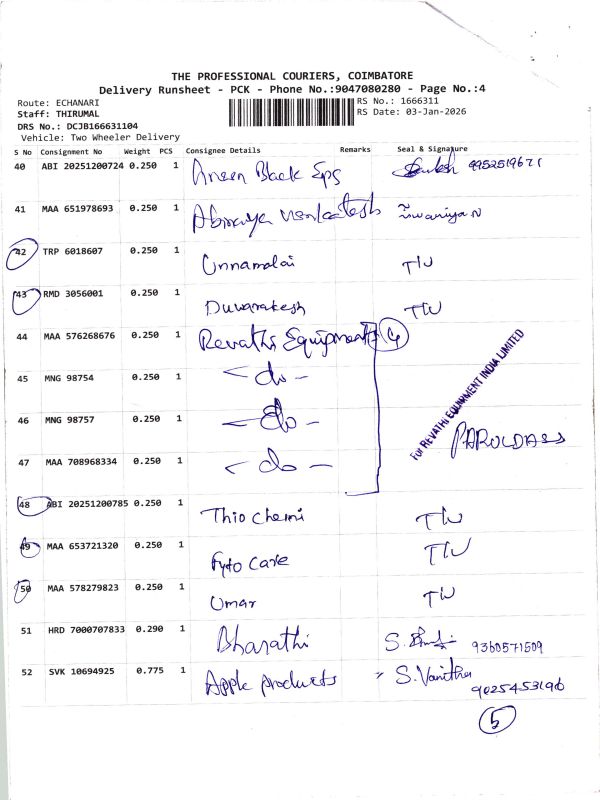 THE PROFESSIONAL COURIERS, COIMBATORE
Delivery Runsheet - PCK - Phone No.:9047080280 - Page No.:4
Route: ECHANARI
RS No.: 1666311
Staff: THIRUMAL
RS Date: 03-Jan-2026
DRS No.: DCJB166631104
Vehicle: Two Wheeler Delivery
S No Consignment No Weight PCS Consignee Details Remarks Seal & Signature
40 ABI 20251200724 0.250 1 Black Eps 9952519671
41 MAA 651978693 0.250 1 Abinaya Venkatesh
42 TRP 6018607 0.250 1 Unnamalai T/W
43 RMD 3056001 0.250 1 Duwarakesh T/W
44 MAA 576268676 0.250 1 Revathi Equipment 4
45 MNG 98754 0.250 1 - do -
For REVATHI EQUIPMENT INDIA LIMITED
46 MNG 98757 0.250 1 - do -
PAROLDASS
47 MAA 708968334 0.250 1 - do -
48 ABI 20251200785 0.250 1 Thio chemi T/W
49 MAA 653721320 0.250 1 Fyto Care T/W
50 MAA 578279823 0.250 1 Umar T/W
51 HRD 7000707833 0.290 1 Bharathi 9360571509
52 SVK 10694925 0.775 1 Apple products S. Vanitha
9025453196
5